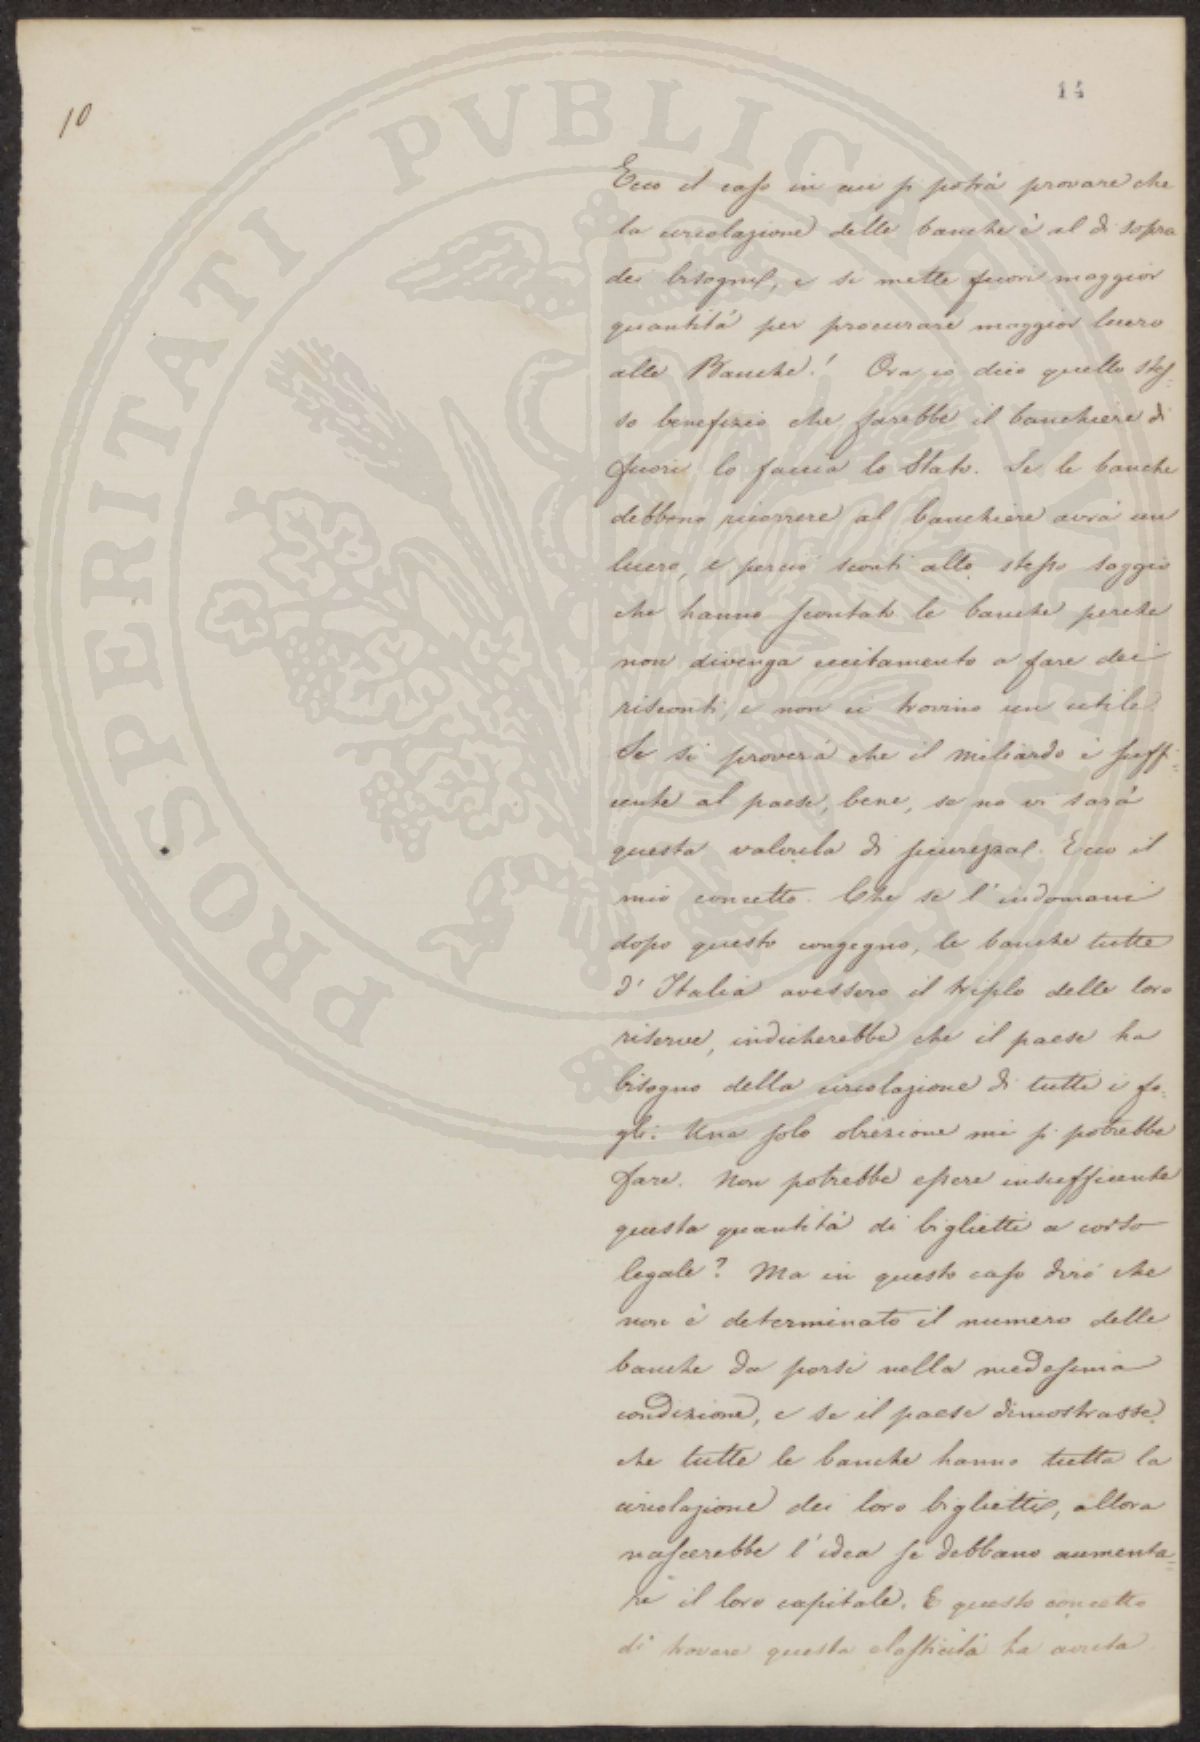 14
10
Ecco il caso in cui si potrà provare che
la circolazione delle banche è al di sopra
dei bisogni, e si mette fuori maggior
quantità per procurare maggior lucro
alle Banche! Ora io dico quello stes=
so benefizio che farebbe il banchiere di
fuori lo faccia lo Stato. Se le banche
debbono ricorrere al banchiere avrà un
lucro, e perciò sconti allo stesso saggio
che hanno scontato le banche perchè
non divenga eccitamento a fare dei
risconti, e non ci trovino un utile.
Se si proverà che il miliardo è suffi=
cente al paese, bene, se no vi sarà
questa valvola di sicurezza. Ecco il
mio concetto. Che se l'indomani
dopo questo congegno, le banche tutte
d'Italia avessero il triplo delle loro
riserve, indicherebbe che il paese ha
bisogno della circolazione di tutti i fo=
gli. Una sola obiezione mi si potrebbe
fare. Non potrebbe essere insufficente
questa quantità di biglietti a corso
legale? Ma in questo caso dirò che
non è determinato il numero delle
banche da porsi nella medesima
condizione, e se il paese dimostrasse
che tutte le banche hanno tutta la
circolazione dei loro biglietti, allora
nascerebbe l'idea se debbano aumenta=
re il loro capitale. E questo concetto
di trovare questa elasticità ha avuta
PROSPERITATI PVBLICAE